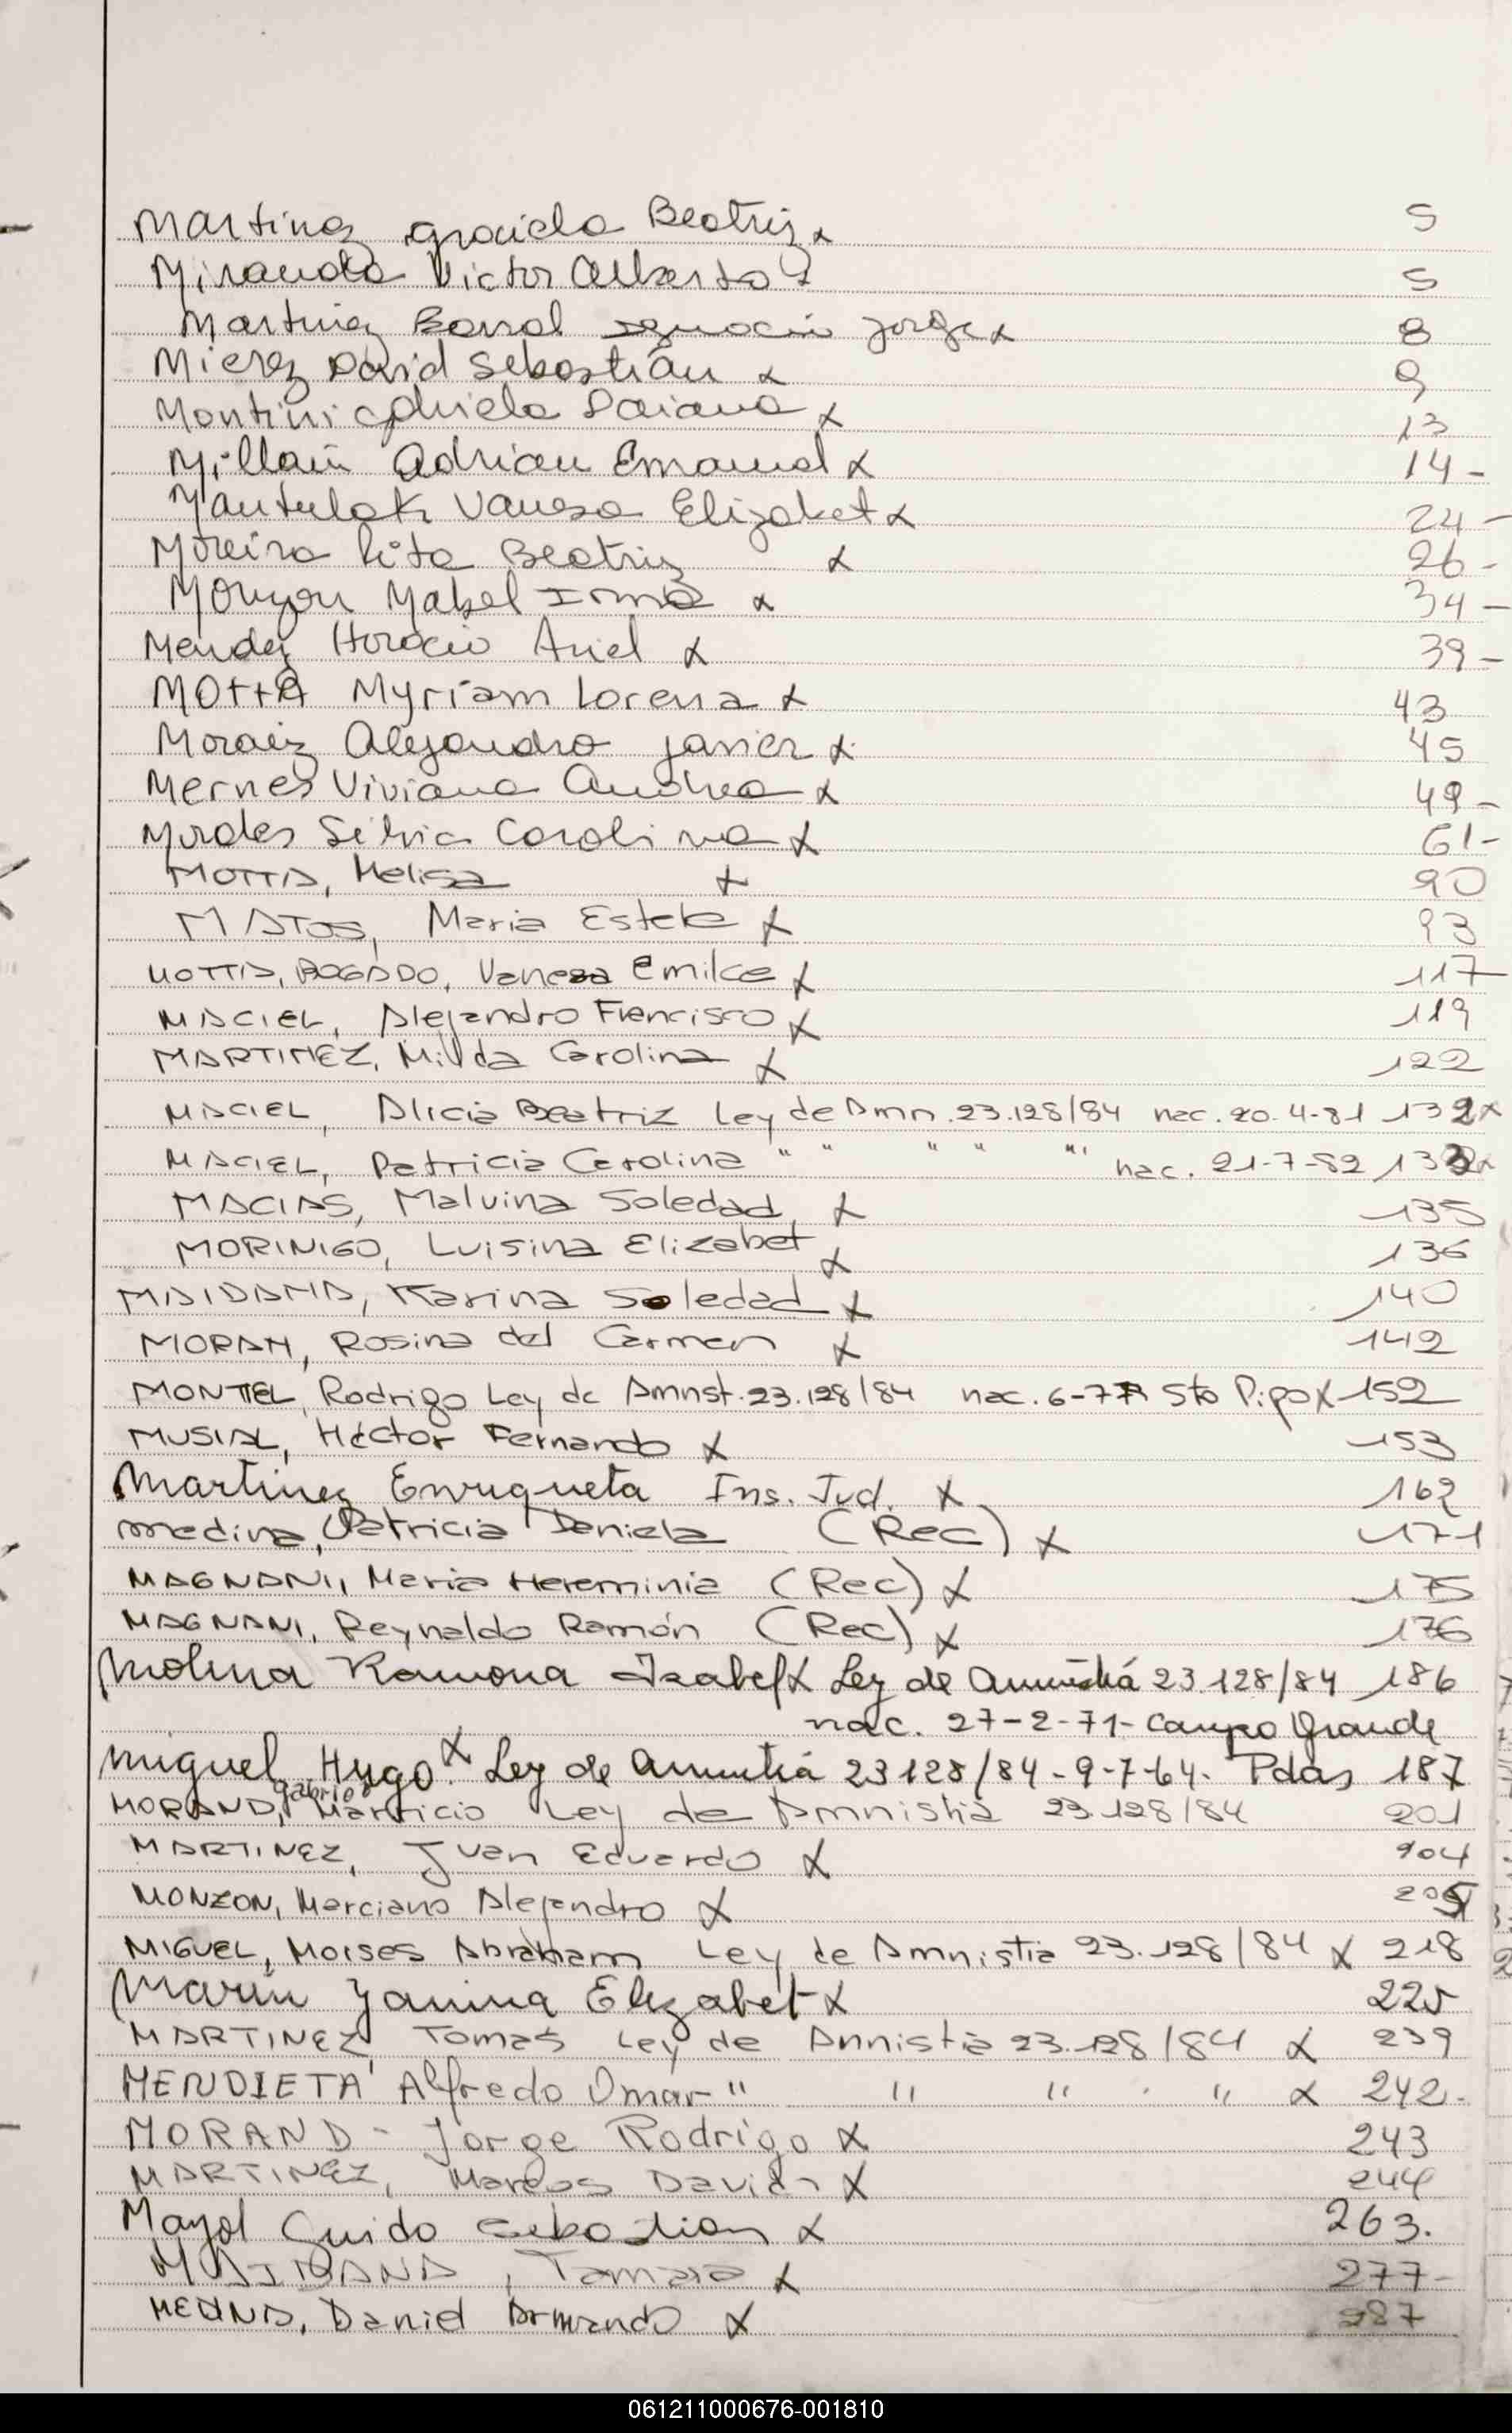 Martinez Graciela Beatriz x 5
Miranda Victor Alberto x 5
Martinez Barral Ignacio Jorge x 8
Mierez David Sebastián x 9
Montini Gabriela Daiana x 13
Millan Adrian Emanuel x 14-
Mantulak Vanesa Elizabet x 24-
Moreira Rita Beatriz x 26-
Monzon Mabel Irma x 34-
Mendez Horacio Ariel x 39-
MOttA Myriam Lorena x 43
Moraiz Alejandro Javier x 45
Mernes Viviana Andrea x 49-
Silvia Carolina x 61-
MOTTA, Melisa x 90
MATOS, Maria Estela x 93
MOTTA, BOGADO, Vanesa Emilce x 117
MACIEL, Alejandro Francisco x 119
MARTINEZ, Milda Carolina x 122
MACIEL, Alicia Beatriz Ley de Amn. 23.128/84 nac. 20-4-81 132 x
MACIEL, Patricia Carolina " " " " " nac. 21-7-82 133 x
MACIAS, Malvina Soledad x 135
MORINIGO, Luisina Elizabet x 136
MAIDANA, Karina Soledad x 140
MORAN, Rosina del Carmen x 142
MONTIEL, Rodrigo Ley de Amnst. 23.128/84 nac. 6-7 Sto Pipo x 152
MUSIAL, Héctor Fernando x 153
Martinez Enriqueta Ins. Jud. x 162
Medina, Patricia Daniela (Rec) x 171
MAGNANI, Maria Hereminia (Rec) x 175
MAGNANI, Reynaldo Ramón (Rec) x 176
Molina Ramona Isabel x Ley de Amnistiá 23.128/84 186
nac. 27-2-71- Campo Grande
Miguel Hugo. x Ley de Amnistiá 23128/84-9-7-64. Pdas 187
Gabriel
MORAND, Mauricio Ley de Amnistia 23.128/84 201
MARTINEZ, Juan Eduardo x 204
MONZON, Marciano Alejandro x 205
MIGUEL, Moises Abraham Ley de Amnistia 23.128/84 x 218
Marin Yanina Elizabet x 225
MARTINEZ, Tomas Ley de Amnistia 23.128/84 x 239
MENDIETA Alfredo Omar " " " " x 242-
MORAND - Jorge Rodrigo x 243
MARTINEZ, Marcos David x 244
Mayol Guido Sebastian x 263.
MAIDANA, Tamara x 277-
Daniel Armando x 287
061211000676-001810